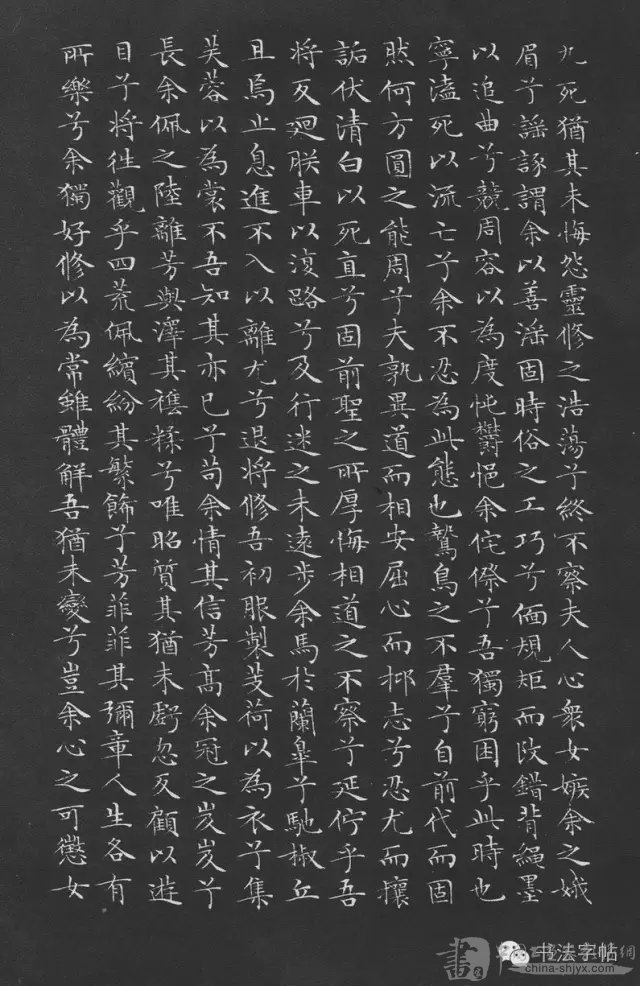 九死猶其未悔怨靈修之浩蕩兮終不察夫人心衆女嫉余之娥
眉兮謠諑謂余以善淫固時俗之工巧兮偭規矩而改錯背繩墨
以追曲兮競周容以為度忳鬱悒余侘傺兮吾獨窮困乎此時也
寧溘死以流亡兮余不忍為此態也鷙鳥之不羣兮自前代而固
然何方圓之能周兮夫孰異道而相安屈心而抑志兮忍尤而攘
詬伏清白以死直兮固前聖之所厚悔相道之不察兮延佇乎吾
將反廻朕車以復路兮及行迷之未遠步余馬於蘭臯兮馳椒丘
且焉止息進不入以離尤兮退將修吾初服製芰荷以為衣兮集
芙蓉以為裳不吾知其亦已兮苟余情其信芳高余冠之岌岌兮
長余佩之陸離芳與澤其雜糅兮唯昭質其猶未虧忽反顧以遊
目兮將往觀乎四荒佩繽紛其繁飾兮芳菲菲其彌章人生各有
所樂兮余獨好修以為常雖體解吾猶未變兮豈余心之可懲女
书法字帖
china-shjyx.com